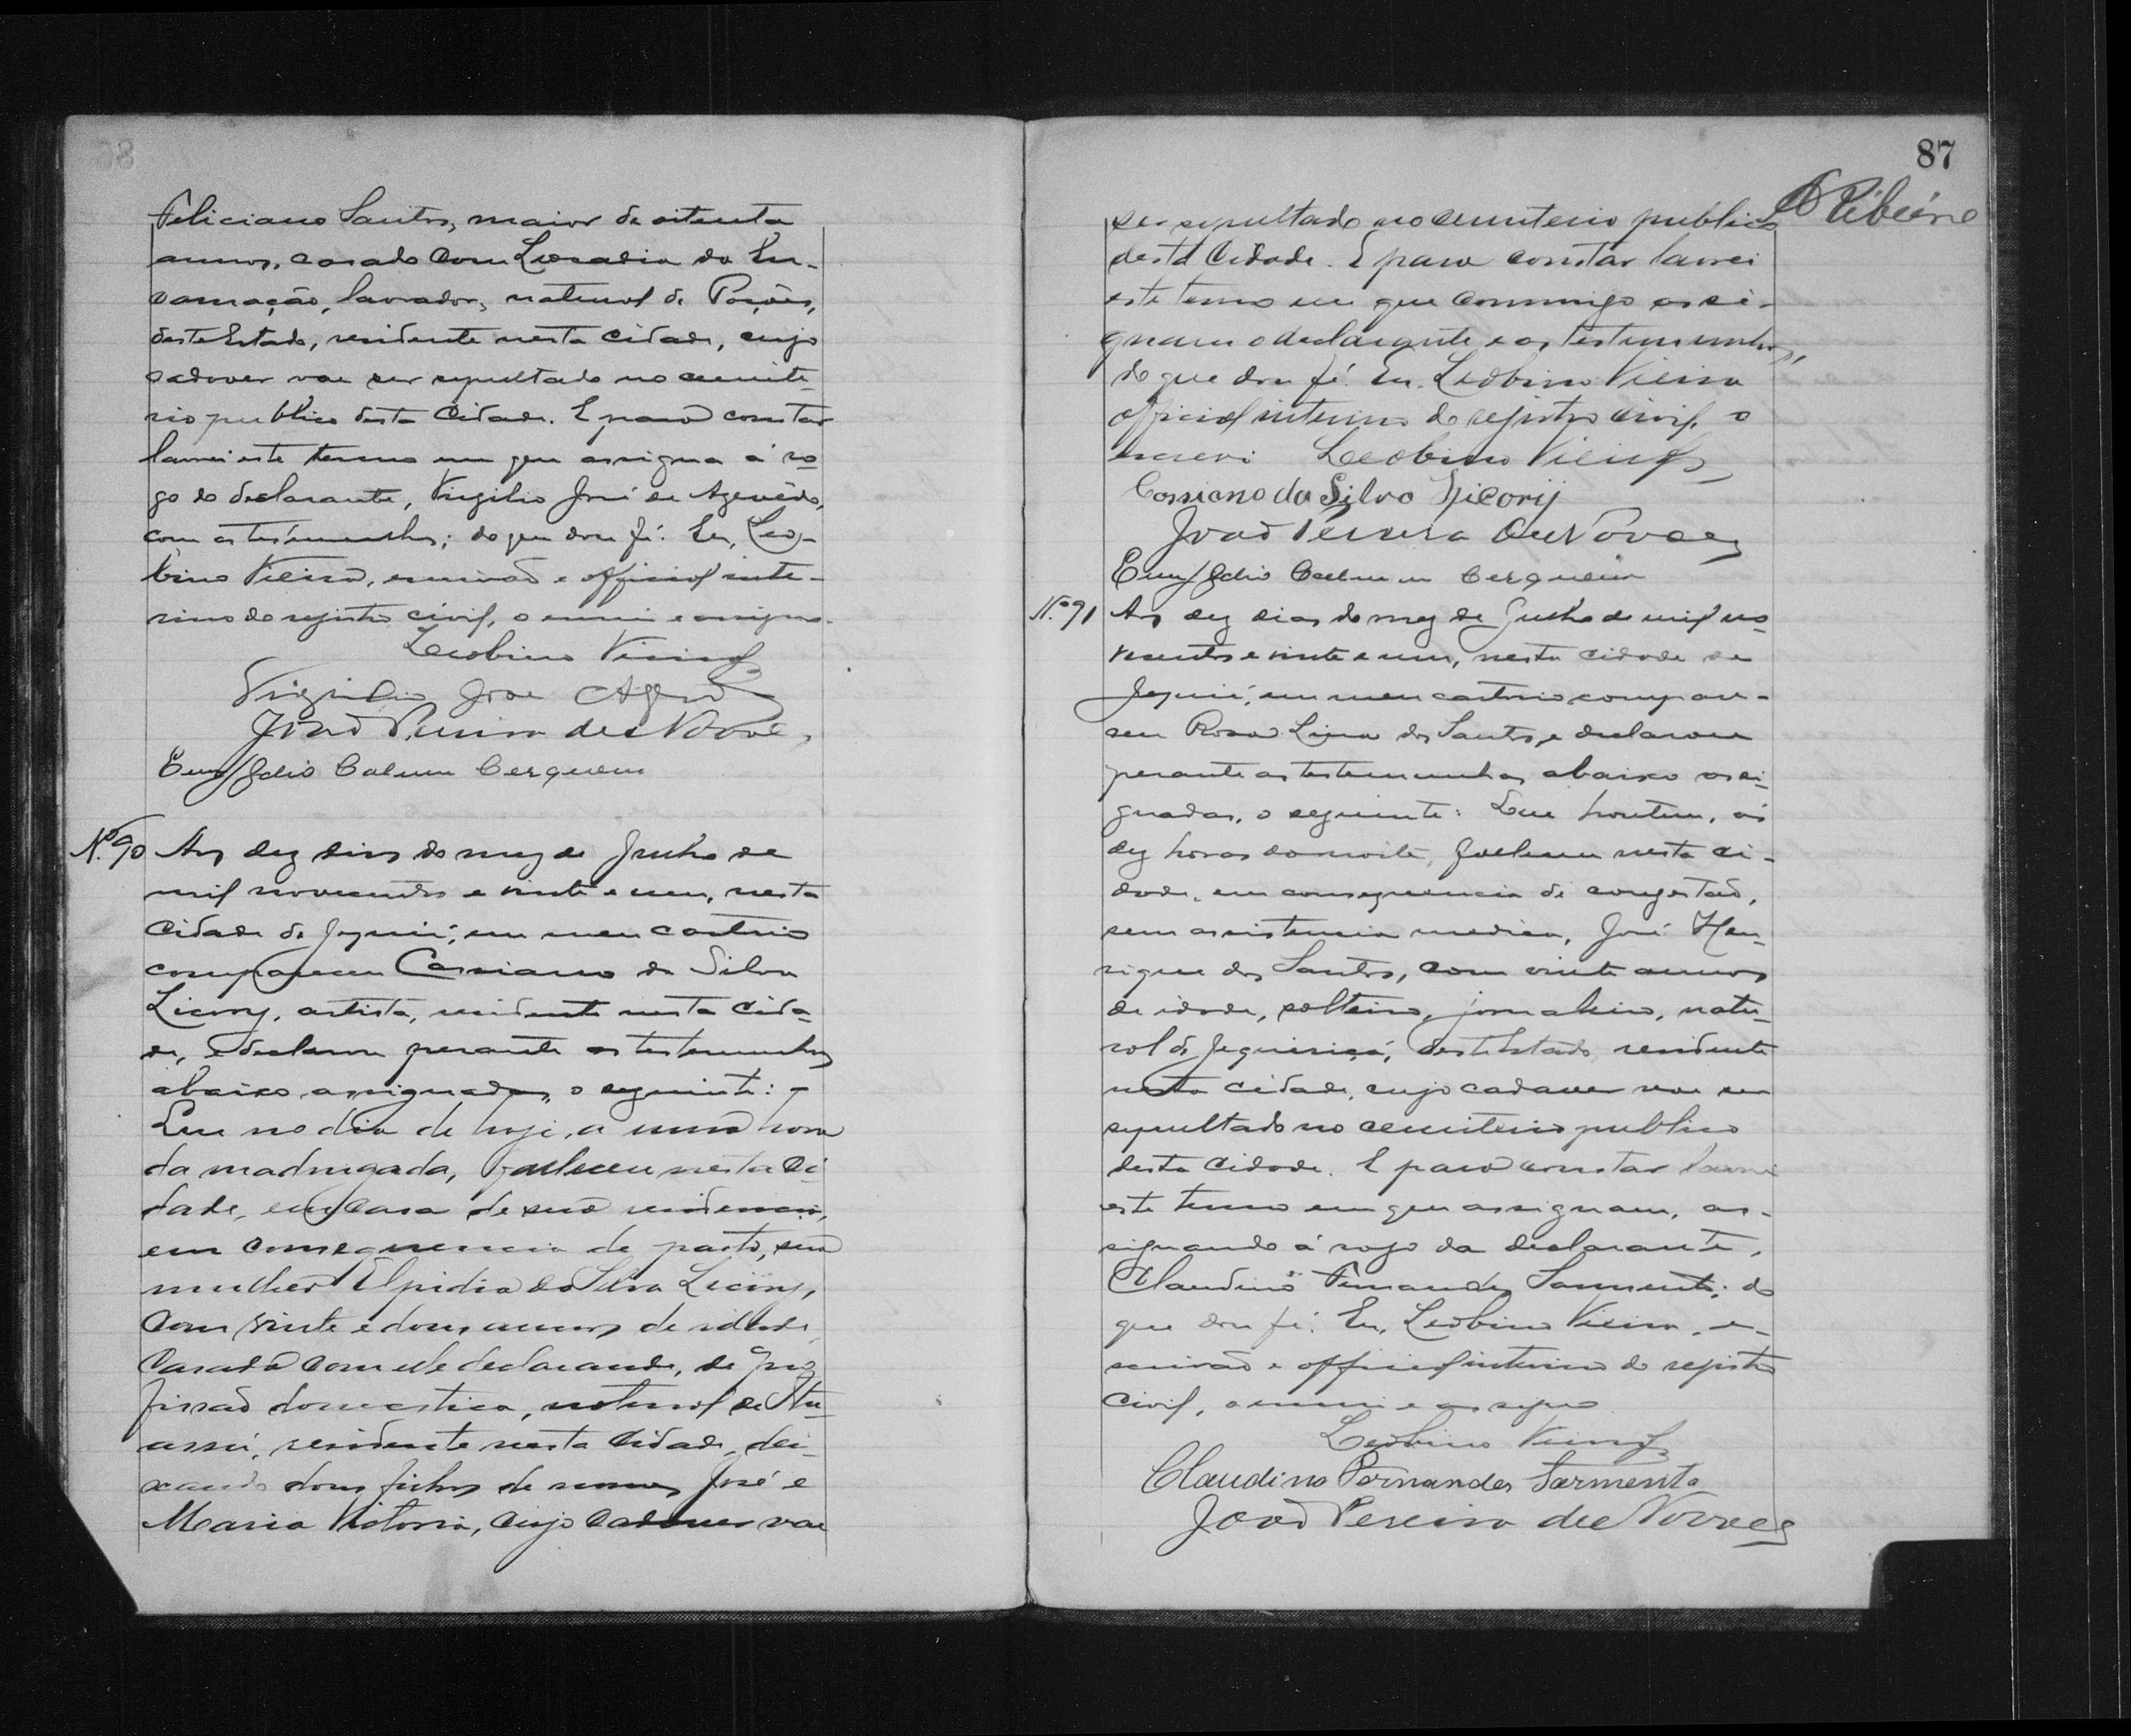 Feliciano Santos, maior de oitenta
annos, casado com Leocadia da En-
carnação, lavrador, natural de Poções,
deste Estado, residente nesta cidade, cujo
cadaver vae ser sepultado no cemite-
rio publico desta Cidade. E para constar
lavrei este termo em que assigna á ro-
go do declarante, Virgilio José de Azevêdo,
com as testemunhas; do que dou fé. Eu, Leo-
bino Vieira, escrivão e official inte-
rino do registro civil, o escrevi e assigno.
Leobino Vieira
Virgilio Jose
João Pereira de Novaes
Calmon Cerqueira
Nº 90 Aos dez dias do mez de Junho de
mil novecentos e vinte e um, nesta
Cidade de Jequié, em meu cartorio
compareceu Cassiano da Silva
Licory, artista, residente nesta cida-
de, e declarou perante as testemunhas
abaixo assignadas, o seguinte:
Que no dia de hoje, a uma hora
da madrugada, falleceu nesta Ci-
dade, em casa de sua residencia,
em consequencia de parto, sua
mulher Elpidia da Silva Licory,
com vinte e dous annos de idade,
Casada com elle declarande, de pro-
fissão domestica, natural de Itu-
assú, residente nesta Cidade, dei-
xando dous filhos de nomes José e
Maria Victoria, cujo cadaver vae
87
Ribeiro
ser sepultado no cemiterio publico
desta Cidade. E para constar lavrei
este termo em que commigo assi-
gnam o declarante e as testemunhas,
do que dou fé. Eu, Leobino Vieira
official interino do registro civil, o
escrevi Leobino Vieira
Cassiano da Silva Licorij
João Pereira de Novaes
Calmon Cerqueira
Nº 91 Aos dez dias do mez de Junho de mil no-
vecentos e vinte e um, nesta cidade de
Jequié, em meu cartorio compare-
ceu Rosa Lina dos Santos, e declarou
perante as testemunhas abaixo assi-
gnadas, o seguinte: Que hontem, ás
dez horas da noite, falleceu nesta ci-
dade, em consequencia de congestão,
sem assistencia medica, José Hen-
rique dos Santos, com vinte annos
de idade, solteiro, jornaleiro, natu-
ral de Jequiriçá, deste Estado, residente
nesta cidade, cujo cadaver vae ser
sepultado no cemiterio publico
desta Cidade. E para constar lavrei
este termo em que assignam, as-
signando á rogo da declarante,
Claudino Fernandes Sarmento; do
que dou fé. Eu, Leobino Vieira, es-
crivão e official interino do registro
Civil, o escrevi e assigno
Leobino Vieira
Claudino Fernandes Sarmento
João Pereira de Novaes